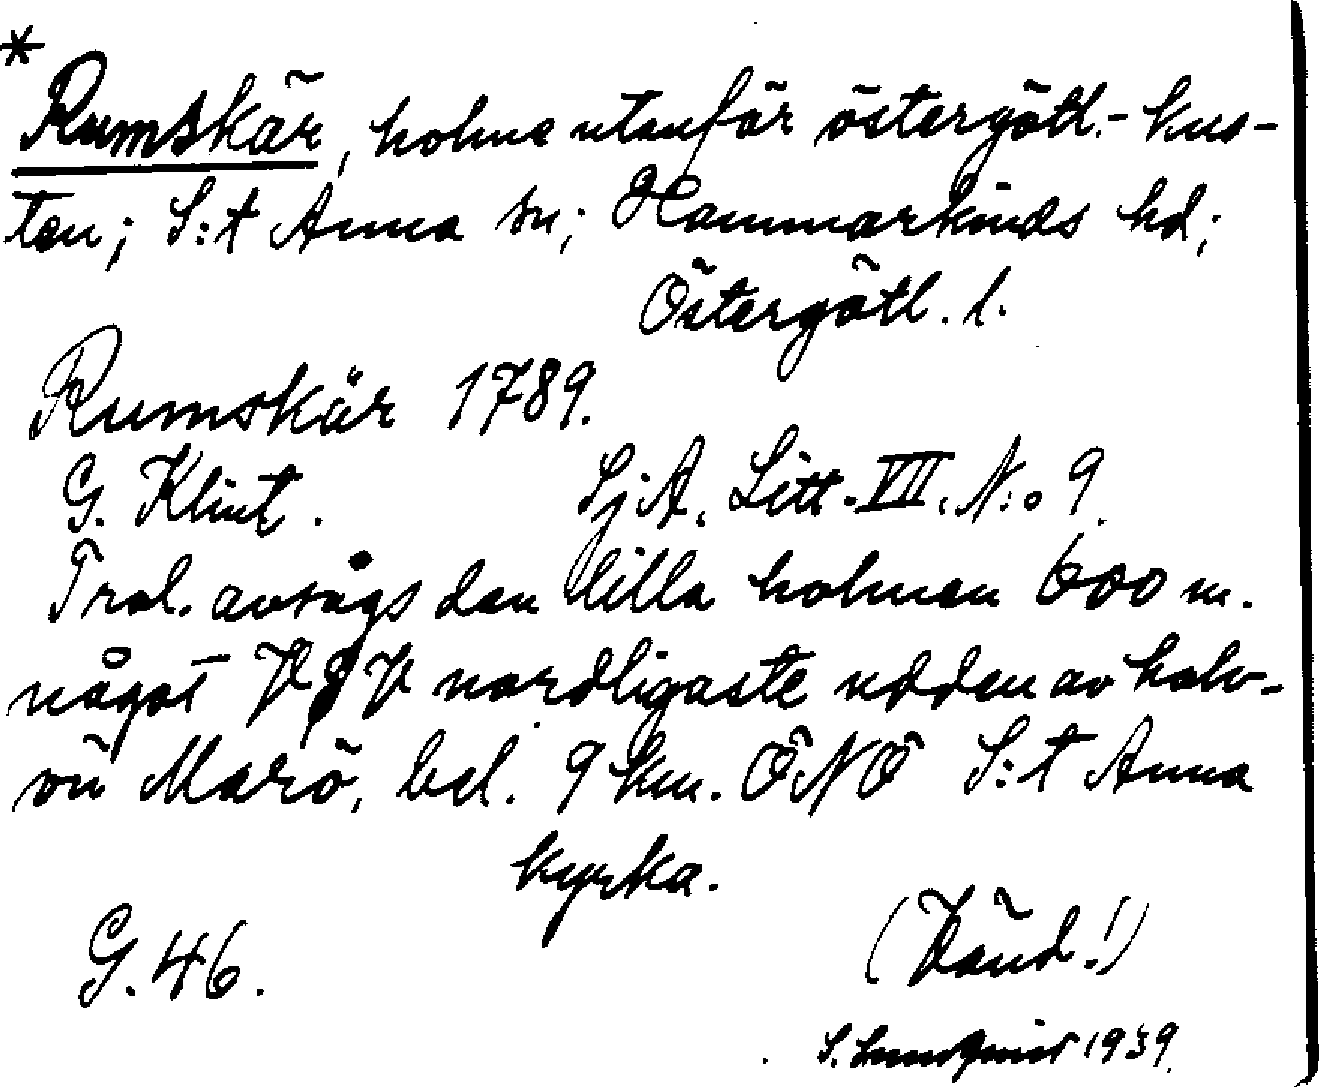 *
Rumskär, holme utanför östergötl.-kus-
ten; S:t Anna sn; Hammarkinds hd;
Östergötl. l.
Rumskär 1789.
G. Klint. SjA. Litt. VII. N:o 9.
Trol. avsågs den lilla holmen 600 m.
något VSV nordligaste udden av halv-
ön Marö, bel. 9 km. ÖNÖ S:t Anna
kyrka.
G. 46. (Vänd!)
S. 1939.